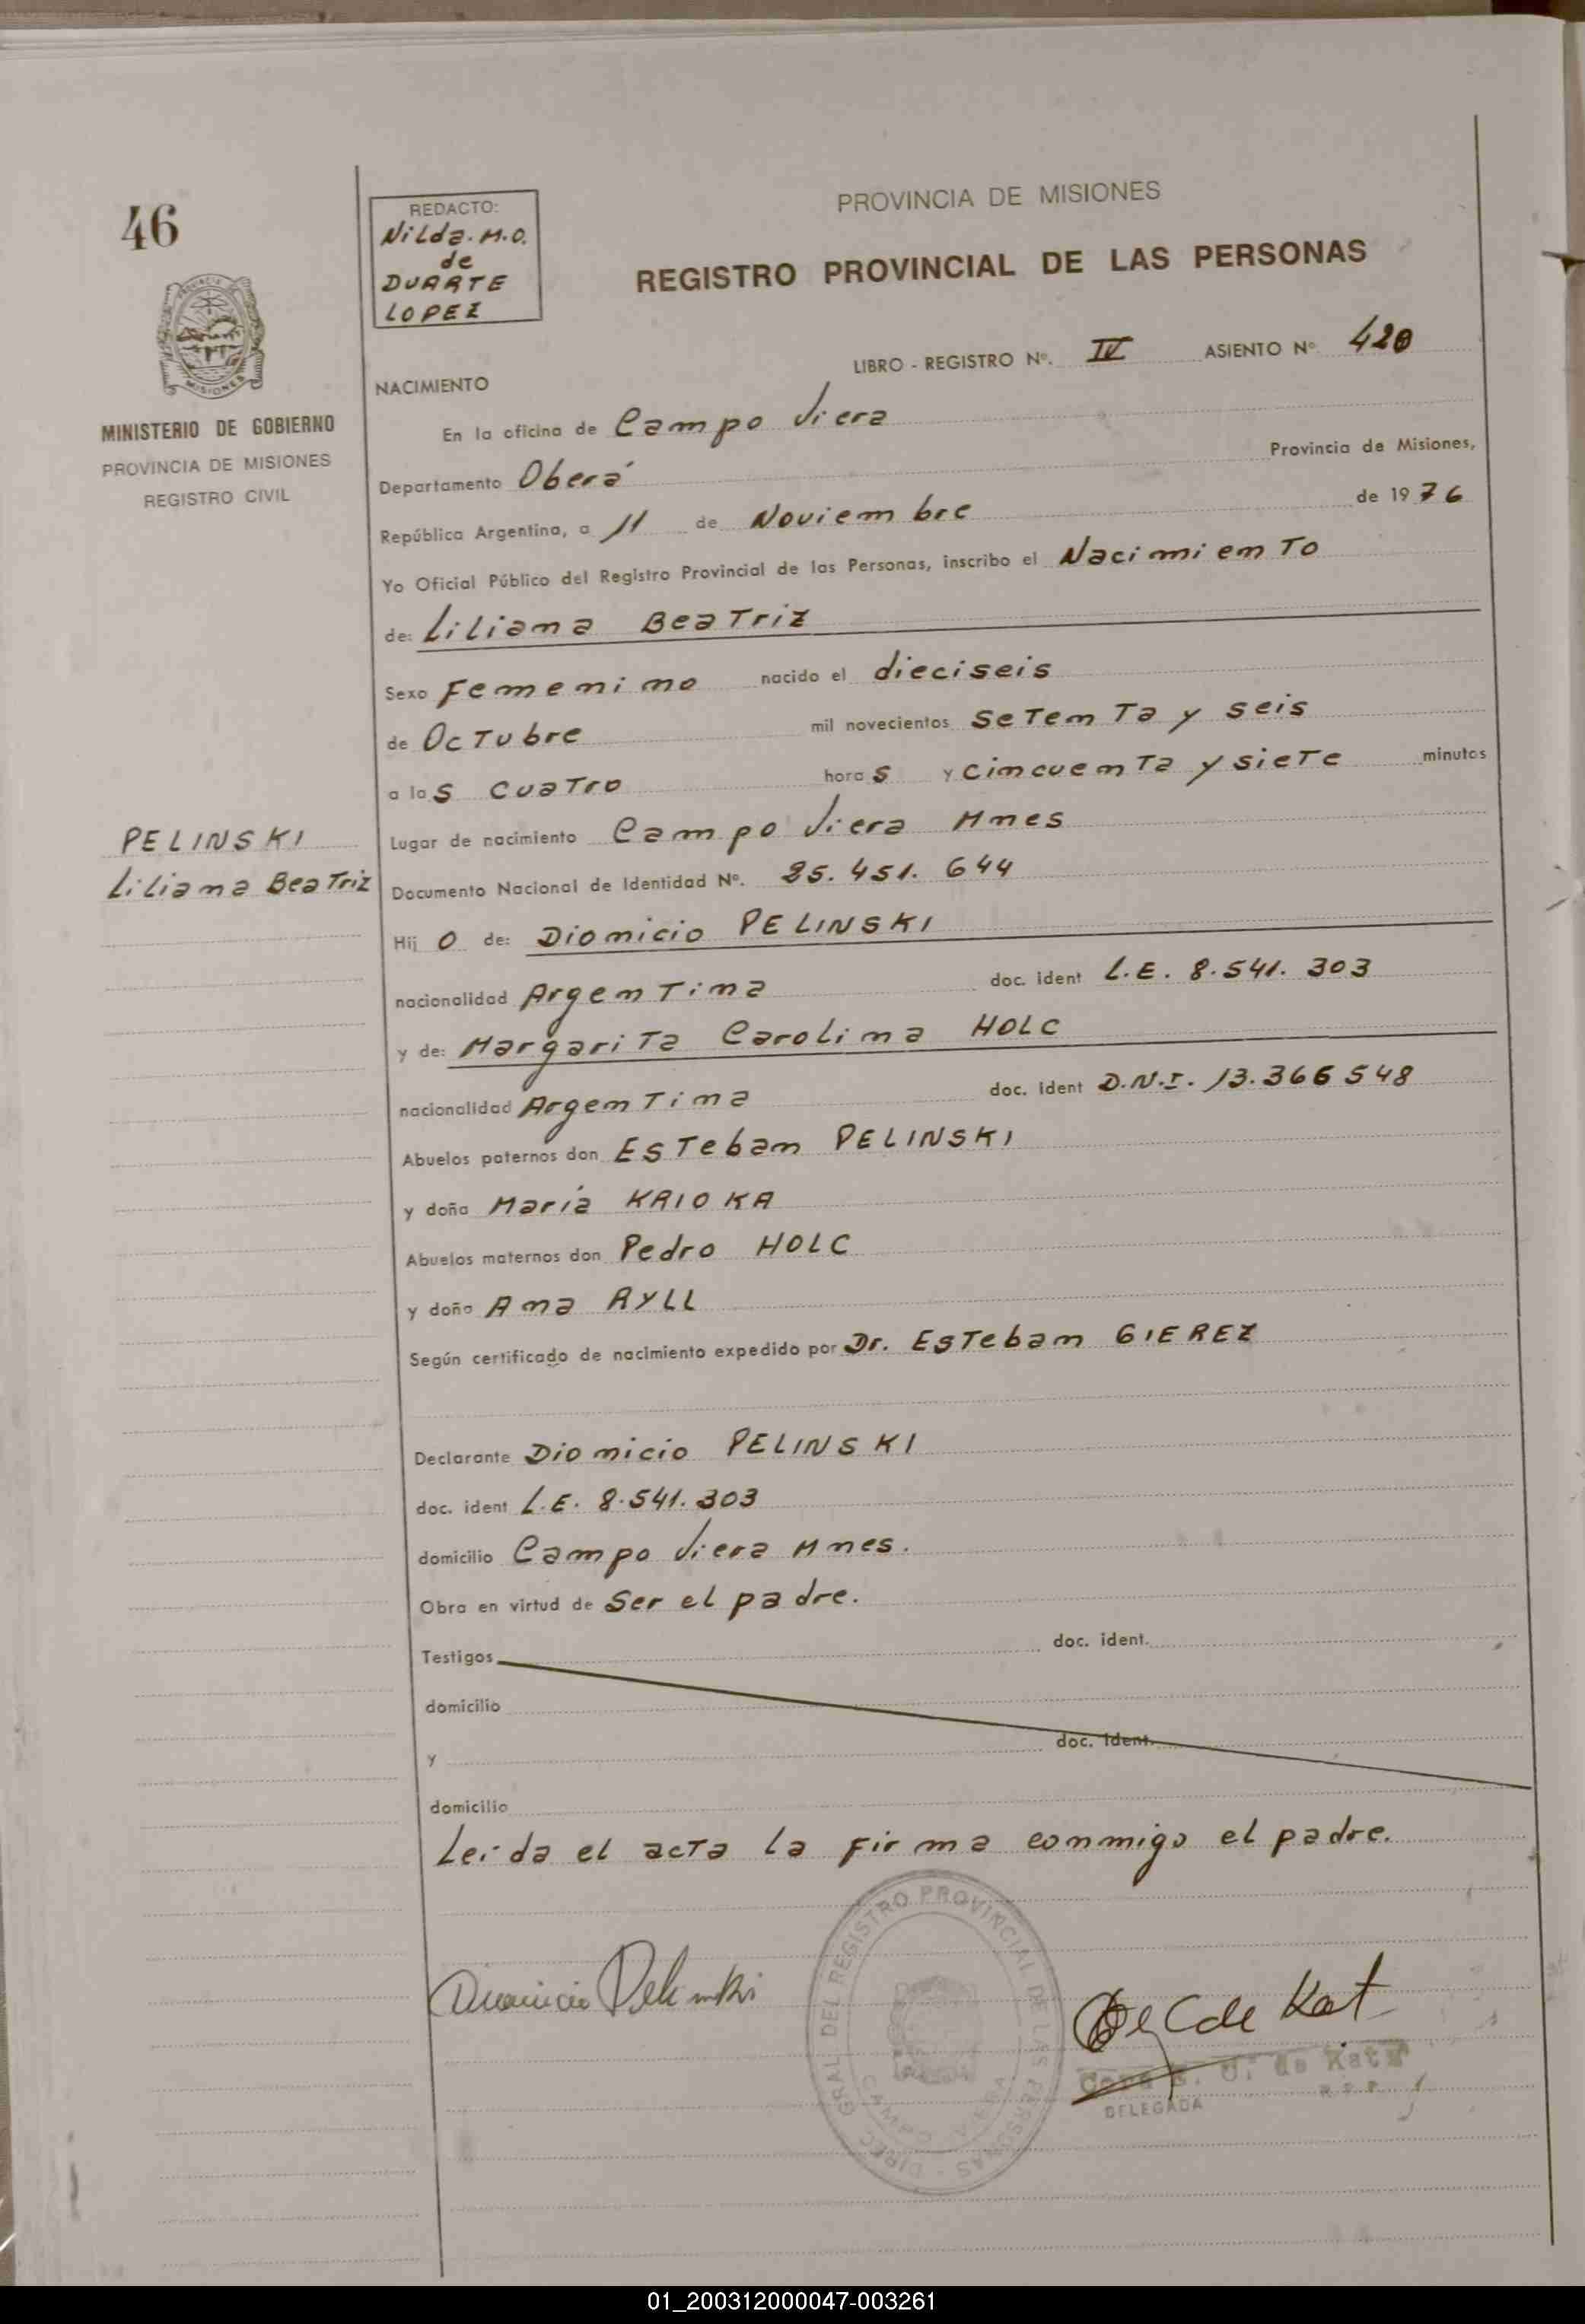 46
REDACTO:
Nilda. M.O.
de
DUARTE
LOPEZ
PROVINCIA DE MISIONES
REGISTRO PROVINCIAL DE LAS PERSONAS
PROVINCIA
MISIONES
MINISTERIO DE GOBIERNO
PROVINCIA DE MISIONES
REGISTRO CIVIL
LIBRO - REGISTRO Nº. IV ASIENTO Nº 420
NACIMIENTO
En la oficina de Campo Viera
Departamento Oberá Provincia de Misiones,
República Argentina, a 11 de Noviembre de 1976
Yo Oficial Público del Registro Provincial de las Personas, inscribo el Nacimiento
de: Liliana Beatriz
Sexo Femenino nacido el dieciseis
de Octubre mil novecientos setenta y seis
a las cuatro horas y cincuenta y siete minutos
PELINSKI
Liliana Beatriz
Lugar de nacimiento Campo Viera Mnes
Documento Nacional de Identidad Nº. 25.451.644
Hijo de: Dionicio PELINSKI
nacionalidad Argentina doc. ident L.E. 8.541.303
y de: Margarita Carolina HOLC
nacionalidad Argentina doc. ident D.N.I. 13.366548
Abuelos paternos don Esteban PELINSKI
y doña María KAIOKA
Abuelos maternos don Pedro HOLC
y doña Ana AYLL
Según certificado de nacimiento expedido por Dr. Esteban GIEREZ
Declarante Dionicio PELINSKI
doc. ident L.E. 8.541.303
domicilio Campo Viera Mnes.
Obra en virtud de ser el padre.
Testigos doc. ident.
domicilio
y doc. ident.
domicilio
Leída el acta la firma conmigo el padre.
DIREC. GRAL. DEL REGISTRO PROVINCIAL DE LAS PERSONAS
CAMPO VIERA
Dionicio Pelinski
de Kat
de Katz
DELEGADA
01_200312000047-003261